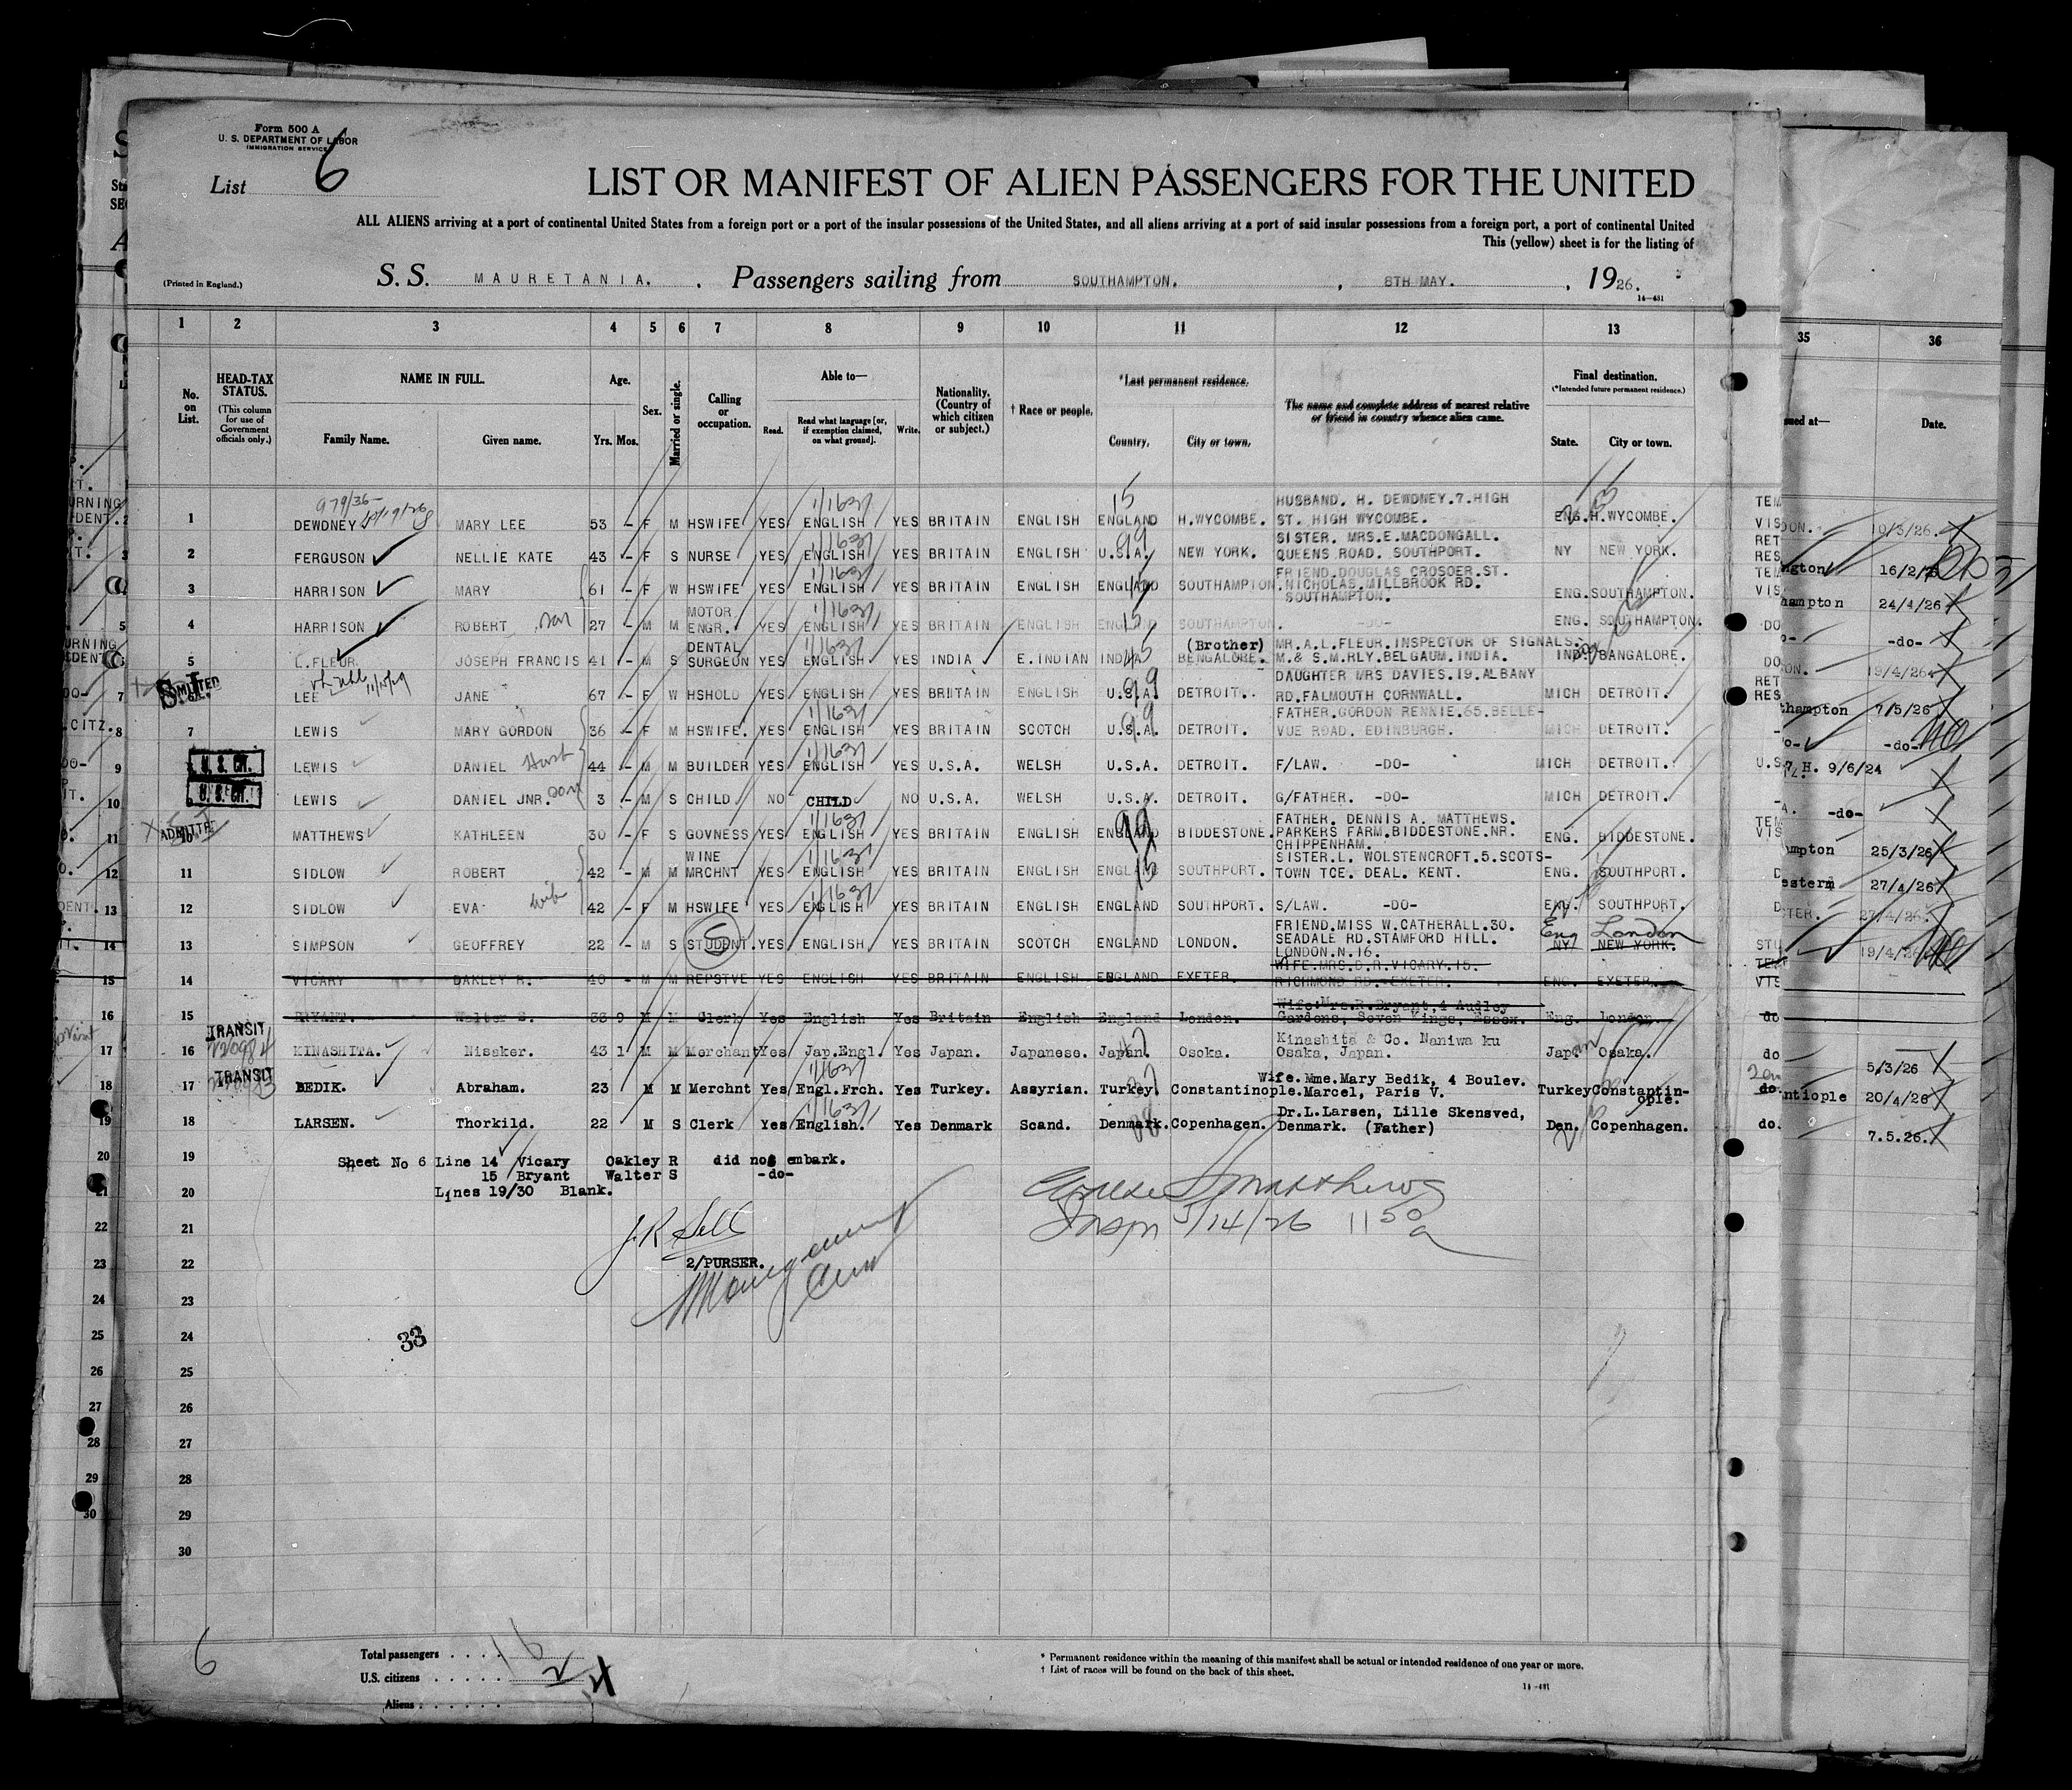 Form 500 A
U. S. DEPARTMENT OF LABOR
IMMIGRATION SERVICE
List 6
LIST OR MANIFEST OF ALIEN PASSENGERS FOR THE UNITED
ALL ALIENS arriving at a port of continental United States from a foreign port or a port of the insular possessions of the United States, and all aliens arriving at a port of said insular possessions from a foreign port, a port of continental United
This (yellow) sheet is for the listing of
(Printed in England.)
S. S. MAURETANIA. , Passengers sailing from SOUTHAMPTON. , 8TH MAY. , 1926.
14-431
1 2 3 4 5 6 7 8 9 10 11 12 13 35 36
No. on List.
HEAD-TAX STATUS.
(This column for use of Government officials only.)
NAME IN FULL.
Family Name. Given name.
Age.
Yrs. Mos.
Sex.
Married or single.
Calling or occupation.
Able to—
Read. Read what language [or, if exemption claimed, on what ground]. Write.
Nationality. (Country of which citizen or subject.)
† Race or people.
*Last permanent residence.
Country. City or town.
The name and complete address of nearest relative or friend in country whence alien came.
Final destination.
(*Intended future permanent residence.)
State. City or town.
Date.
979/36-
HUSBAND. H. DEWDNEY.7.HIGH
1 DEWDNEY MARY LEE 53 - F M HSWIFE YES ENGLISH YES BRITAIN ENGLISH ENGLAND H.WYCOMBE. ST. HIGH WYCOMBE. ENG. H.WYCOMBE. 10/3/26.
SISTER. MRS.E.MACDONGALL.
2 FERGUSON NELLIE KATE 43 - F S NURSE YES ENGLISH YES BRITAIN ENGLISH U.S.A. NEW YORK. QUEENS ROAD. SOUTHPORT. NY NEW YORK.
FRIEND.DOUGLAS CROSOER.ST.
3 HARRISON MARY 61 - F W HSWIFE YES ENGLISH YES BRITAIN ENGLISH ENGLAND SOUTHAMPTON. NICHOLAS.MILLBROOK RD. SOUTHAMPTON. ENG. SOUTHAMPTON. 24/4/26
4 HARRISON ROBERT son 27 - M M MOTOR ENGR. YES ENGLISH YES BRITAIN ENGLISH ENGLAND SOUTHAMPTON. -DO- ENG. SOUTHAMPTON. -do-
(Brother) MR.A.L.FLEUR.INSPECTOR OF SIGNALS.
5 L.FLEUR. JOSEPH FRANCIS 41 - M S DENTAL SURGEON YES ENGLISH YES INDIA E.INDIAN INDIA BENGALORE. M.& S.M.RLY.BELGAUM.INDIA. IND. BANGALORE. 19/4/26
DAUGHTER MRS DAVIES.19.ALBANY
ADMITTED S.I. LEE JANE 67 - F W HSHOLD YES ENGLISH YES BRITAIN ENGLISH U.S.A. DETROIT. RD.FALMOUTH CORNWALL. MICH DETROIT. 7/5/26
FATHER.GORDON RENNIE.65.BELLE-
7 LEWIS MARY GORDON 36 - F M HSWIFE. YES ENGLISH YES BRITAIN SCOTCH U.S.A. DETROIT. VUE ROAD. EDINBURGH. MICH DETROIT. -do-
LEWIS DANIEL 44 - M M BUILDER YES ENGLISH YES U.S.A. WELSH U.S.A. DETROIT. F/LAW. -DO- MICH DETROIT. 9/6/24
U.S. CIT. LEWIS DANIEL JNR. son 3 - M S CHILD. NO CHILD NO U.S.A. WELSH U.S.A. DETROIT. G/FATHER. -DO- MICH DETROIT. -do-
FATHER. DENNIS A. MATTHEWS.
ADMITTED 10 MATTHEWS KATHLEEN 30 - F S GOVNESS YES ENGLISH YES BRITAIN ENGLISH ENGLAND BIDDESTONE. PARKERS FARM.BIDDESTONE.NR. CHIPPENHAM. ENG. BIDDESTONE. 25/3/26
SISTER.L. WOLSTENCROFT.5.SCOTS-
11 SIDLOW ROBERT 42 - M M WINE MRCHNT YES ENGLISH YES BRITAIN ENGLISH ENGLAND SOUTHPORT. TOWN TCE. DEAL. KENT. ENG. SOUTHPORT. 27/4/26
12 SIDLOW EVA wife 42 - F M HSWIFE YES ENGLISH YES BRITAIN ENGLISH ENGLAND SOUTHPORT. S/LAW. -DO- ENG. SOUTHPORT. 27/4/26.
FRIEND.MISS W.CATHERALL.30. Eng London
13 SIMPSON GEOFFREY 22 - M S STUDENT. YES ENGLISH YES BRITAIN SCOTCH ENGLAND LONDON. SEADALE RD.STAMFORD HILL. LONDON.N.16. NY NEW YORK. 19/4/26
WIFE.MRS.D.R.VICARY.15.
14 VICARY OAKLEY R. 40 - M M REPSTVE YES ENGLISH YES BRITAIN ENGLISH ENGLAND EXETER. RICHMOND RD. EXETER. ENG. EXETER.
Wife:Mrs.R.Bryant,4 Audley
15 BRYANT. Walter S. 33 9 M M Clerk Yes English Yes Britain English England London. Gardens, Seven Kings, Essex. Eng. London. do
TRANSIT
Kinashita & Co. Naniwa ku
16 KINASHITA. Nissker. 43 1 M M Merchant Yes Jap.Engl. Yes Japan. Japanese. Japan. Osoka. Osaka, Japan. Jap. Osaka. do 5/3/26
TRANSIT
Wife. Mme.Mary Bedik, 4 Boulev.
17 BEDIK. Abraham. 23 M M Merchnt Yes Engl.Frch. Yes Turkey. Assyrian. Turkey Constantinople. Marcel, Paris V. Turkey Constantin-ople. do. 20/4/26
Dr.L.Larsen, Lille Skensved,
18 LARSEN. Thorkild. 22 M S Clerk Yes English. Yes Denmark Scand. Denmark. Copenhagen. Denmark. (Father) Den. Copenhagen. do. 7.5.26.
19 Sheet No 6 Line 14 Vicary Oakley R did not embark.
15 Bryant Walter S -do-
20 Lines 19/30 Blank.
21
5/14/26 11 50 a
22 2/PURSER.
23
24 33
25
26
27
28
29
30
6
Total passengers . . . .
U.S. citizens . . . . .
Aliens . . . . . .
* Permanent residence within the meaning of this manifest shall be actual or intended residence of one year or more.
† List of races will be found on the back of this sheet.
14-431